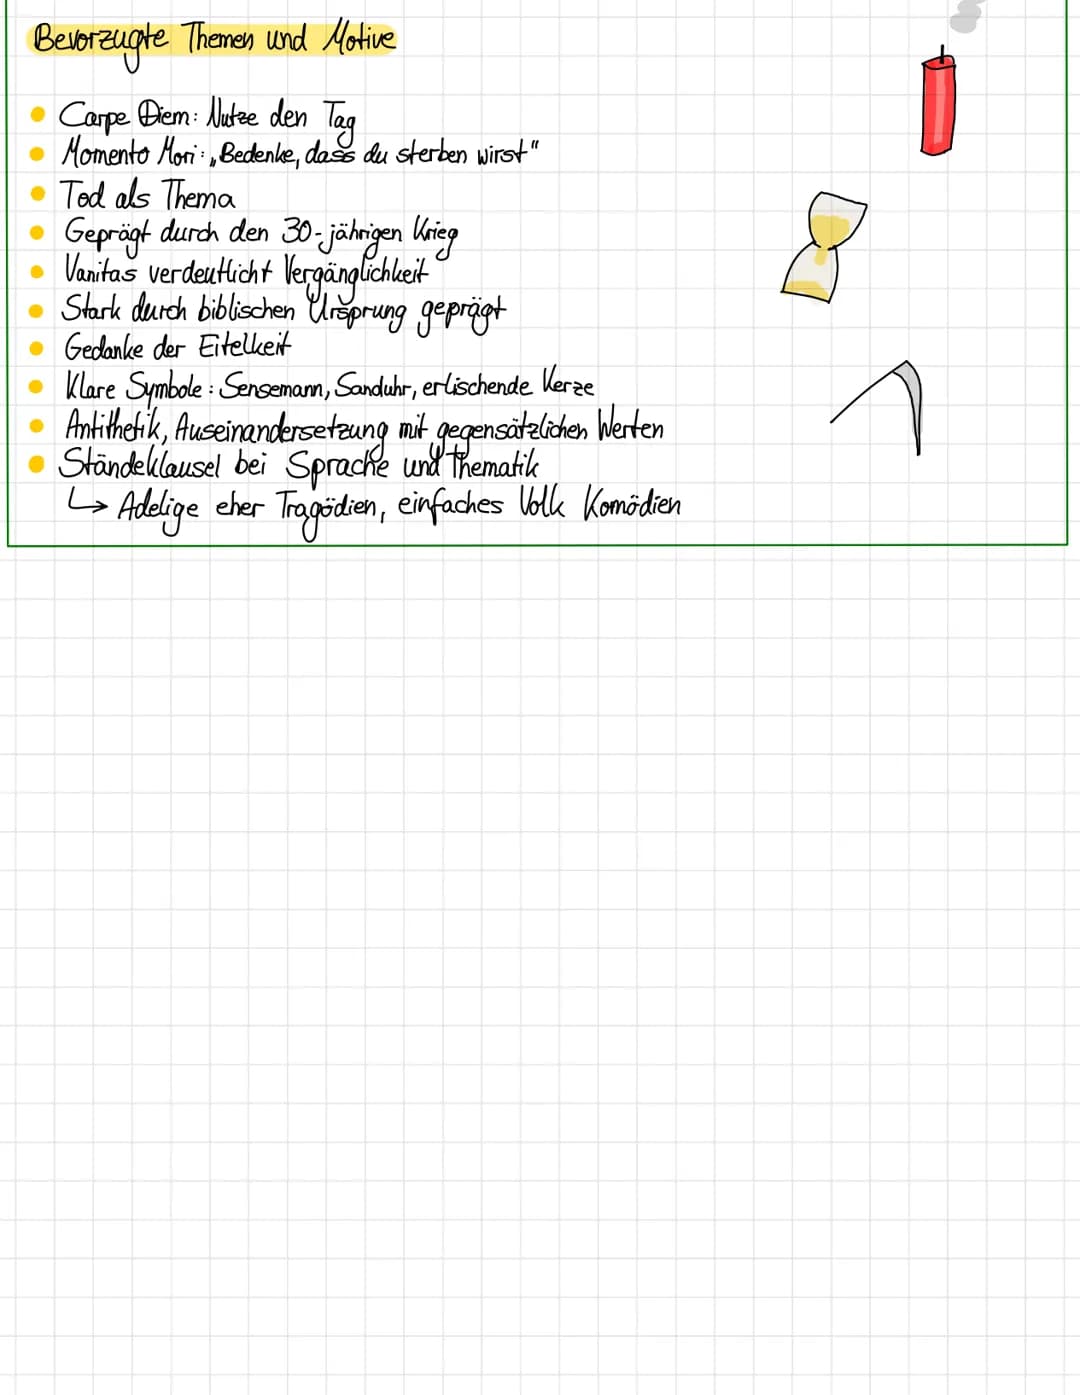 Bevorzugte Themen und Motive
Carpe Diem: Nutze den Tag
Momento Mori: „Bedenke, dass du sterben wirst"
Tod als Thema
Geprägt durch den 30-jährigen Krieg
Vanitas verdeutlicht Vergänglichkeit
Stark durch biblischen Ursprung geprägt
Gedanke der Eitelkeit
Klare Symbole: Sensemann, Sanduhr, erlischende Kerze
Antithetik, Auseinandersetzung mit gegensätzlichen Werten
Ständeklausel bei Sprache und Thematik
↳ Adelige eher Tragödien, einfaches Volk Komödien